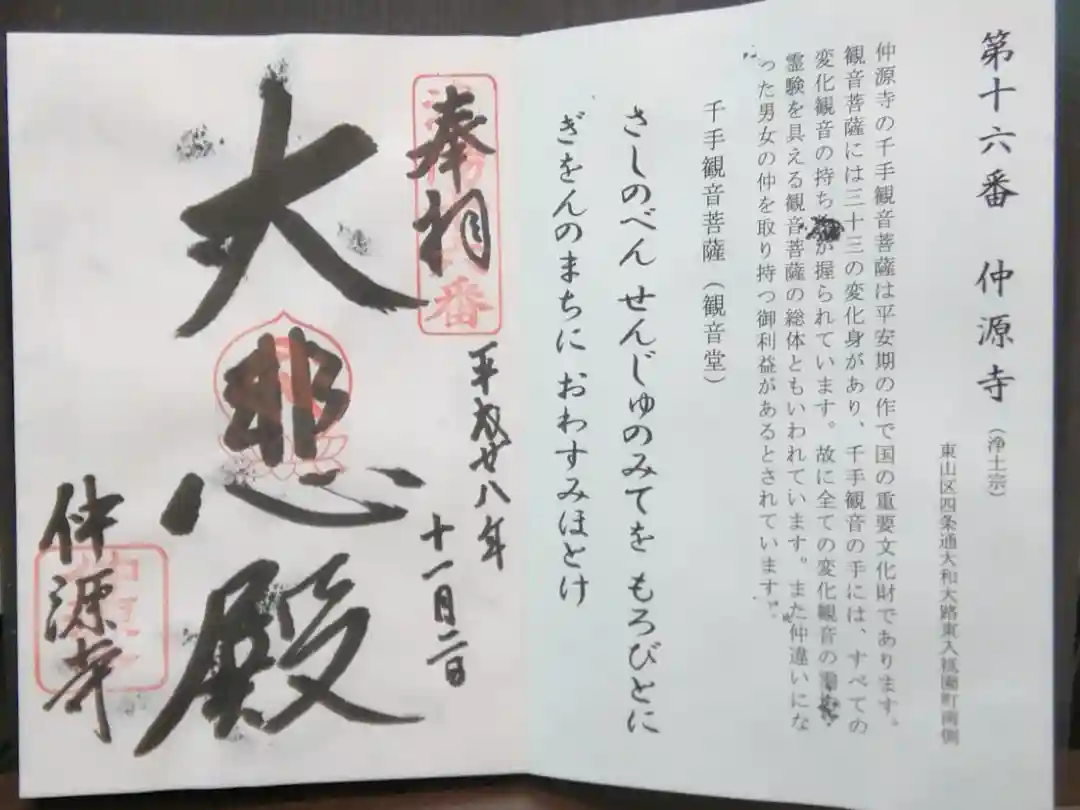 第十六番 仲源寺（浄土宗）
東山区四条通大和大路東入祇園町南側
仲源寺の千手観音菩薩は平安期の作で国の重要文化財であります。
観音菩薩には三十三の変化身があり、千手観音の手には、すべての
変化観音の持ち が握られています。故に全ての変化観音の
霊験を具える観音菩薩の総体ともいわれています。また仲違いにな
った男女の仲を取り持つ御利益があるとされています。
千手観音菩薩（観音堂）
さしのべん せんじゅのみてを もろびとに
ぎをんのまちに おわすみほとけ
奉拝
番
平成廿八年
十一月二日
大悲殿
仲源寺